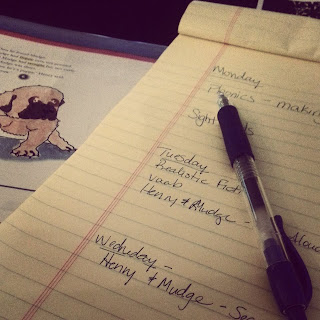 Monday
Phonics - makin
Sight ds
Tuesday
Realistic Fict
Vocab
Henry & Mudge - Aloud
Wednday -
Henry & Mudge - Sec